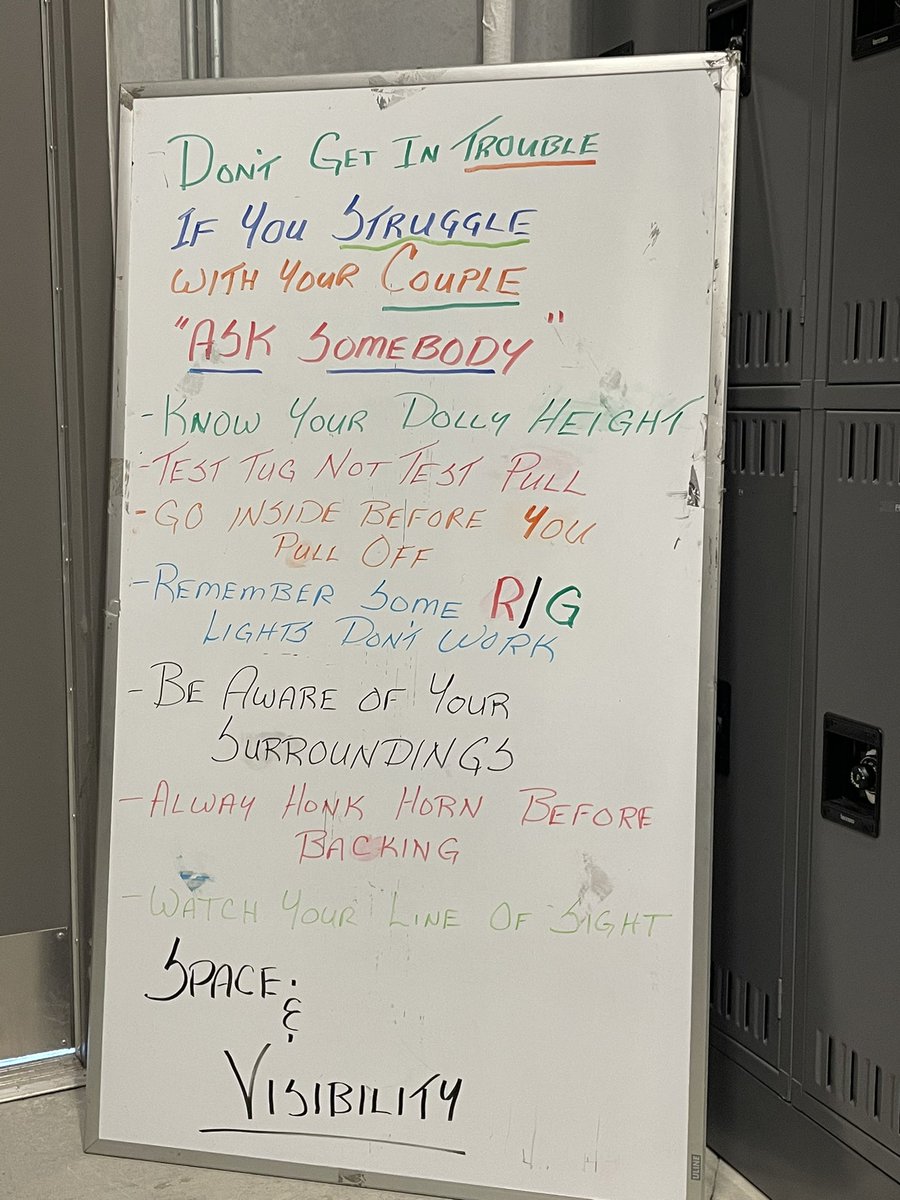 DON'T GET IN TROUBLE
IF YOU STRUGGLE
WITH YOUR COUPLE
"ASK SOMEBODY"
- KNOW YOUR DOLLY HEIGHT
- TEST TUG NOT TEST PULL
- GO INSIDE BEFORE YOU
PULL OFF
- REMEMBER SOME R/G
LIGHTS DON'T WORK
- BE AWARE OF YOUR
SURROUNDINGS
- ALWAY HONK HORN BEFORE
BACKING
- WATCH YOUR LINE OF SIGHT
SPACE
&
VISIBILITY
ULINE